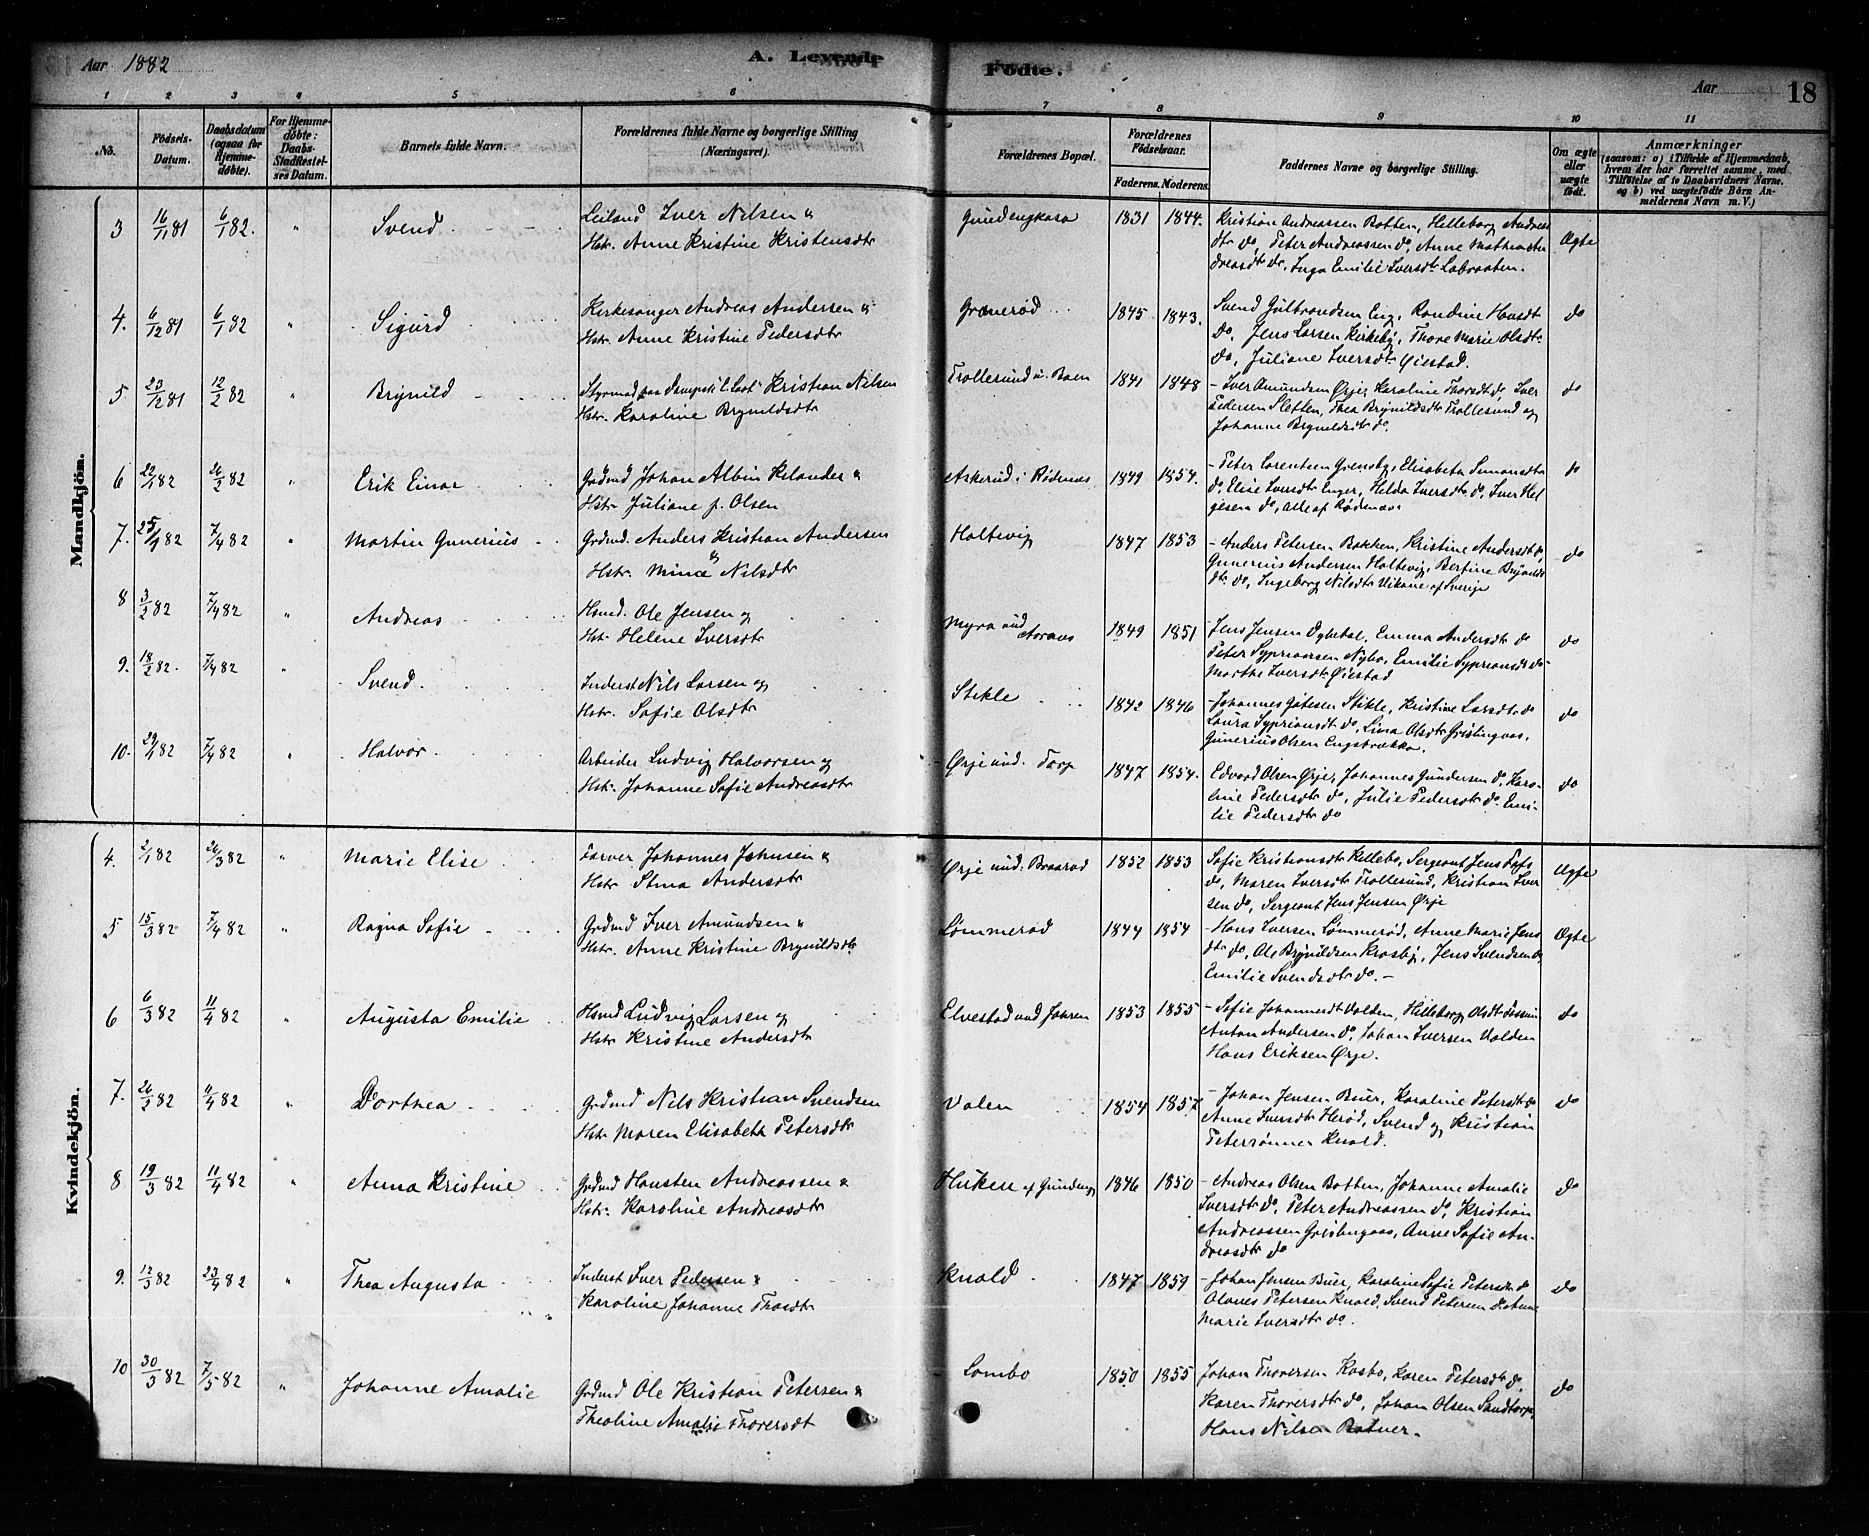 Aar 1882
A. Levende Fødte.
Aar 18
1 2 3 4 5 6 7 8 9 10 11
No.
Fødsels-Datum.
Daabsdatum (ogsaa for Hjemmedøbte).
For Hjemmedøbte: Daabs-Stadfæstelses Datum.
Barnets fulde Navn.
Forældrenes fulde Navne og borgerlige Stilling (Næringsvei).
Forældrenes Bopæl.
Forældrenes Fødselsaar.
Faderens. Moderens.
Faddernes Navne og borgerlige Stilling.
Om ægte eller uægte født.
Anmærkninger
(saasom: a) i Tilfælde af Hjemmedaab, hvem der har forrettet samme, med Tilføielse af to Daabsvidners Navne, og b) ved uægtefødte Børn Anmelderens Navn m. V.)
Mandkjøn.
3 16/11 81 6/1 82. " Svend
Leiland Iver Nilsen &
Hstr. Anne Kristine Kristensdtr
Gundengkasa 1831 1844.
Kristian Andreassen Botten, Helleborg Andreas
dtr do, Peter Andreassen do, Anne Mathea An
dreasdtr do, Inga Emilie Iversdtr Labraaten.
Ægte
4. 6/12 81 6/1 82 " Sigurd
Kirkesanger Andreas Andersen &
Hstr. Anne Kristine Pedersdtr
Grønerød 1845 1843.
Svend Gulbrandsen Eng, Randine Hansdtr
do, Jens Larsen Kirkeby, Thore Marie Olsdtr
do, Juliane Iversdtr Øiestad.
do
5 23/12 81 12/2 82 " Brynild
Styrmand paa Dampsk. "Eart" Kristian Nilsen
Hstr. Karoline Brynildsdtr
Trollesund u. Baen 1841 1848
- Iver Amundsen Ørje, Karoline Thorsdtr do, Iver
Pedersen Sletten, Thea Brynildsdtr Trollesund og
Johanne Brynildsdtr do.
do
6 22/1 82 26/2 82 " Erik Einar
Grdmd Johan Albin Helander &
Hstr. Juliane f. Olsen
Askerud i Rødenæs 1849 1854.
- Peter Lorentsen Grensby, Elisabeth Simonsdtr
do, Elise Iversdtr Enger, Helda Iversdtr do, Iver Hel
gesen do, alle af Rødenæs
do
7. 25/1 82 7/4 82 " Martin Gunerius
Grdmd. Anders Kristian Andersen
& Hstr. Mina Nilsdtr
Holtevig 1847 1853
- Anders Petersen Bakken, Kristine Andersdtr do,
Gunerius Andersen Holtevig, Bertine Brynilds
dtr. do, Ingeborg Nilsdtr Vikane af Sverige
do
8 3/2 82 7/4 82 " Andreas
Hsmd. Ole Jensen og
Hstr. Helene Iversdtr
Myra und Aaraas 1849 1851
- Jens Jensen Dybedal, Emma Andersdtr do
Peter Syprianssen Nybo, Emilie Sypriansdtr do
Marthe Iversdtr Øiestad
do
9. 18/2 82. 7/4 82 " Svend.
Inderst Nils Larsen og
Hstr. Sofie Olsdtr
Stikle 1842 1846
- Johannes Gabesen Stikle, Kristine Larsdtr do
Laura Sypriansdtr do, Lina Olsdtr Grislingaas,
Gunerius Olsen Engsbrække.
do
10. 29/1 82 7/4 82 " Halvor
Arbeider Ludvig Halvorsen og
Hstr. Johanne Sofie Andreasdtr
Ørje und. Torp 1847 1854.
Edvard Olsen Ørje, Johannes Gundersen do, Karo-
line Pedersdtr do, Julie Pedersdtr do Emi-
lie Pedersdtr do
do
Kvindekjøn.
4. 2/1 82 26/3 82 " Marie Elise
Farver Johannes Johnsen &
Hstr Stina Andersdtr
Ørje und. Braarød 1852 1853
Sofie Kristiansdtr Killebo, Sergeant Jens
do, Maren Iversdtr Trollesund, Kristian Iver
sen do, Sergeant Jens Jensen Ørje
Ægte
5 15/3 82 7/4 82 " Ragna Sofie
Grdmd Iver Amundsen &
Hstr. Anne Kristine Brynildsdtr
Lømmerød 1844 1854
- Hans Iversen Lømmerød, Anne Marie Jens
dtr do, Ole Brynildsen Krosby, Jens Svendsen do,
Emilie Svendsdtr do. -
Ægte
6 6/3 82 11/4 82 " Augusta Emilie
Hsmd Ludvig Larsen og
Hstr Kristine Andersdtr
Elvestad und Jahren 1853 1855
- Sofie Johannesdtr Volden, Helleborg Olsdtr
Anton Andersen do, Johan Iversen Volden
Hans Eriksen Ørje.
do
7. 26/2 82 11/4 82 " Dorthea
Grdmd Nils Kristian Svendsen
Hstr Maren Elisabeth Petersdtr
Volen 1854 1857
- Johan Jensen Buer, Karoline Petersdtr do
Anne Iversdtr Herød, Svend og Kristian
Petersønner Knold.
do
8 19/3 82 11/4 82 " Anna Kristine
Grdmd Hansten Andreassen &
Hstr. Karoline Andreasdtr
Huken af Gundeng 1846 1850
- Andreas Olsen Botten, Johanne Amalie
Iversdtr do, Peter Andreassen do, Kristian
Andreassen Grislingaas, Anne Sofie An-
dreasdtr do
do
9. 12/3 82 23/4 82 " Thea Augusta
Inderst Iver Pedersen &
Karoline Johanne Thosdtr
Knold 1847 1859
- Johan Jensen Buer, Karoline Sofie Petersdtr do
Olaves Petersen Knold, Svend Petersen do, Anne
Marie Iversdtr do.
do
10 30/3 82 7/5 82 " Johanne Amalie
Grdmd Ole Kristian Petersen &
Theoline Amalie Thoversdt
Lombo 1850 1855
Johan Thoversen Kasbo, Karen Petersdtr do,
Karen Thoversdtr do, Johan Olsen Sandtorp,
Hans Nilsen Ratver.
do